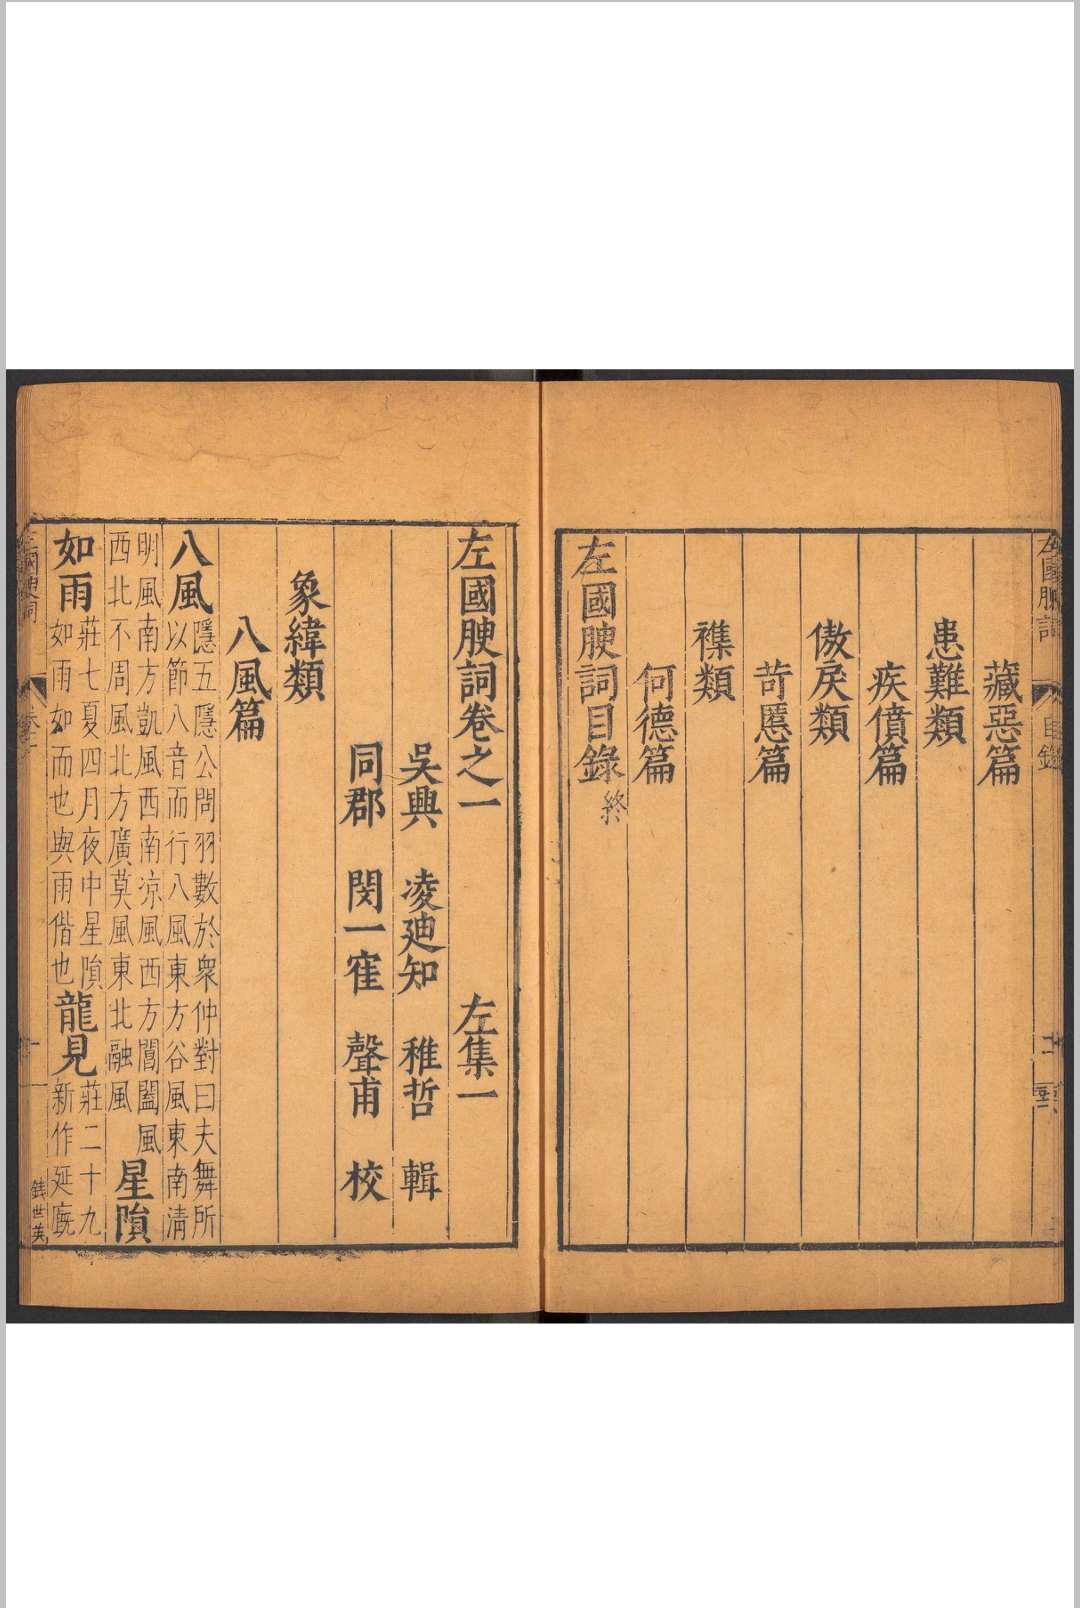 左國腴詞
目錄
藏惡篇
患難類
疾僨篇
傲戾類
苛慝篇
襍類
何德篇
左國腴詞目錄終
左國腴詞卷之一 左集一
吳興 凌迪知 稚哲 輯
同郡 閔一寉 聲甫 校
象緯類
八風篇
八風
隱五隱公問羽數於衆仲對曰夫舞所
以節八音而行八風東方谷風東南清
明風南方凱風西南凉風西方閶闔風
西北不周風北方廣莫風東北融風
星隕
如雨
莊七夏四月夜中星隕
如雨如而也與雨偕也
龍見
莊二十九
新作延廐
國腴詞
卷之一
一
錢世英